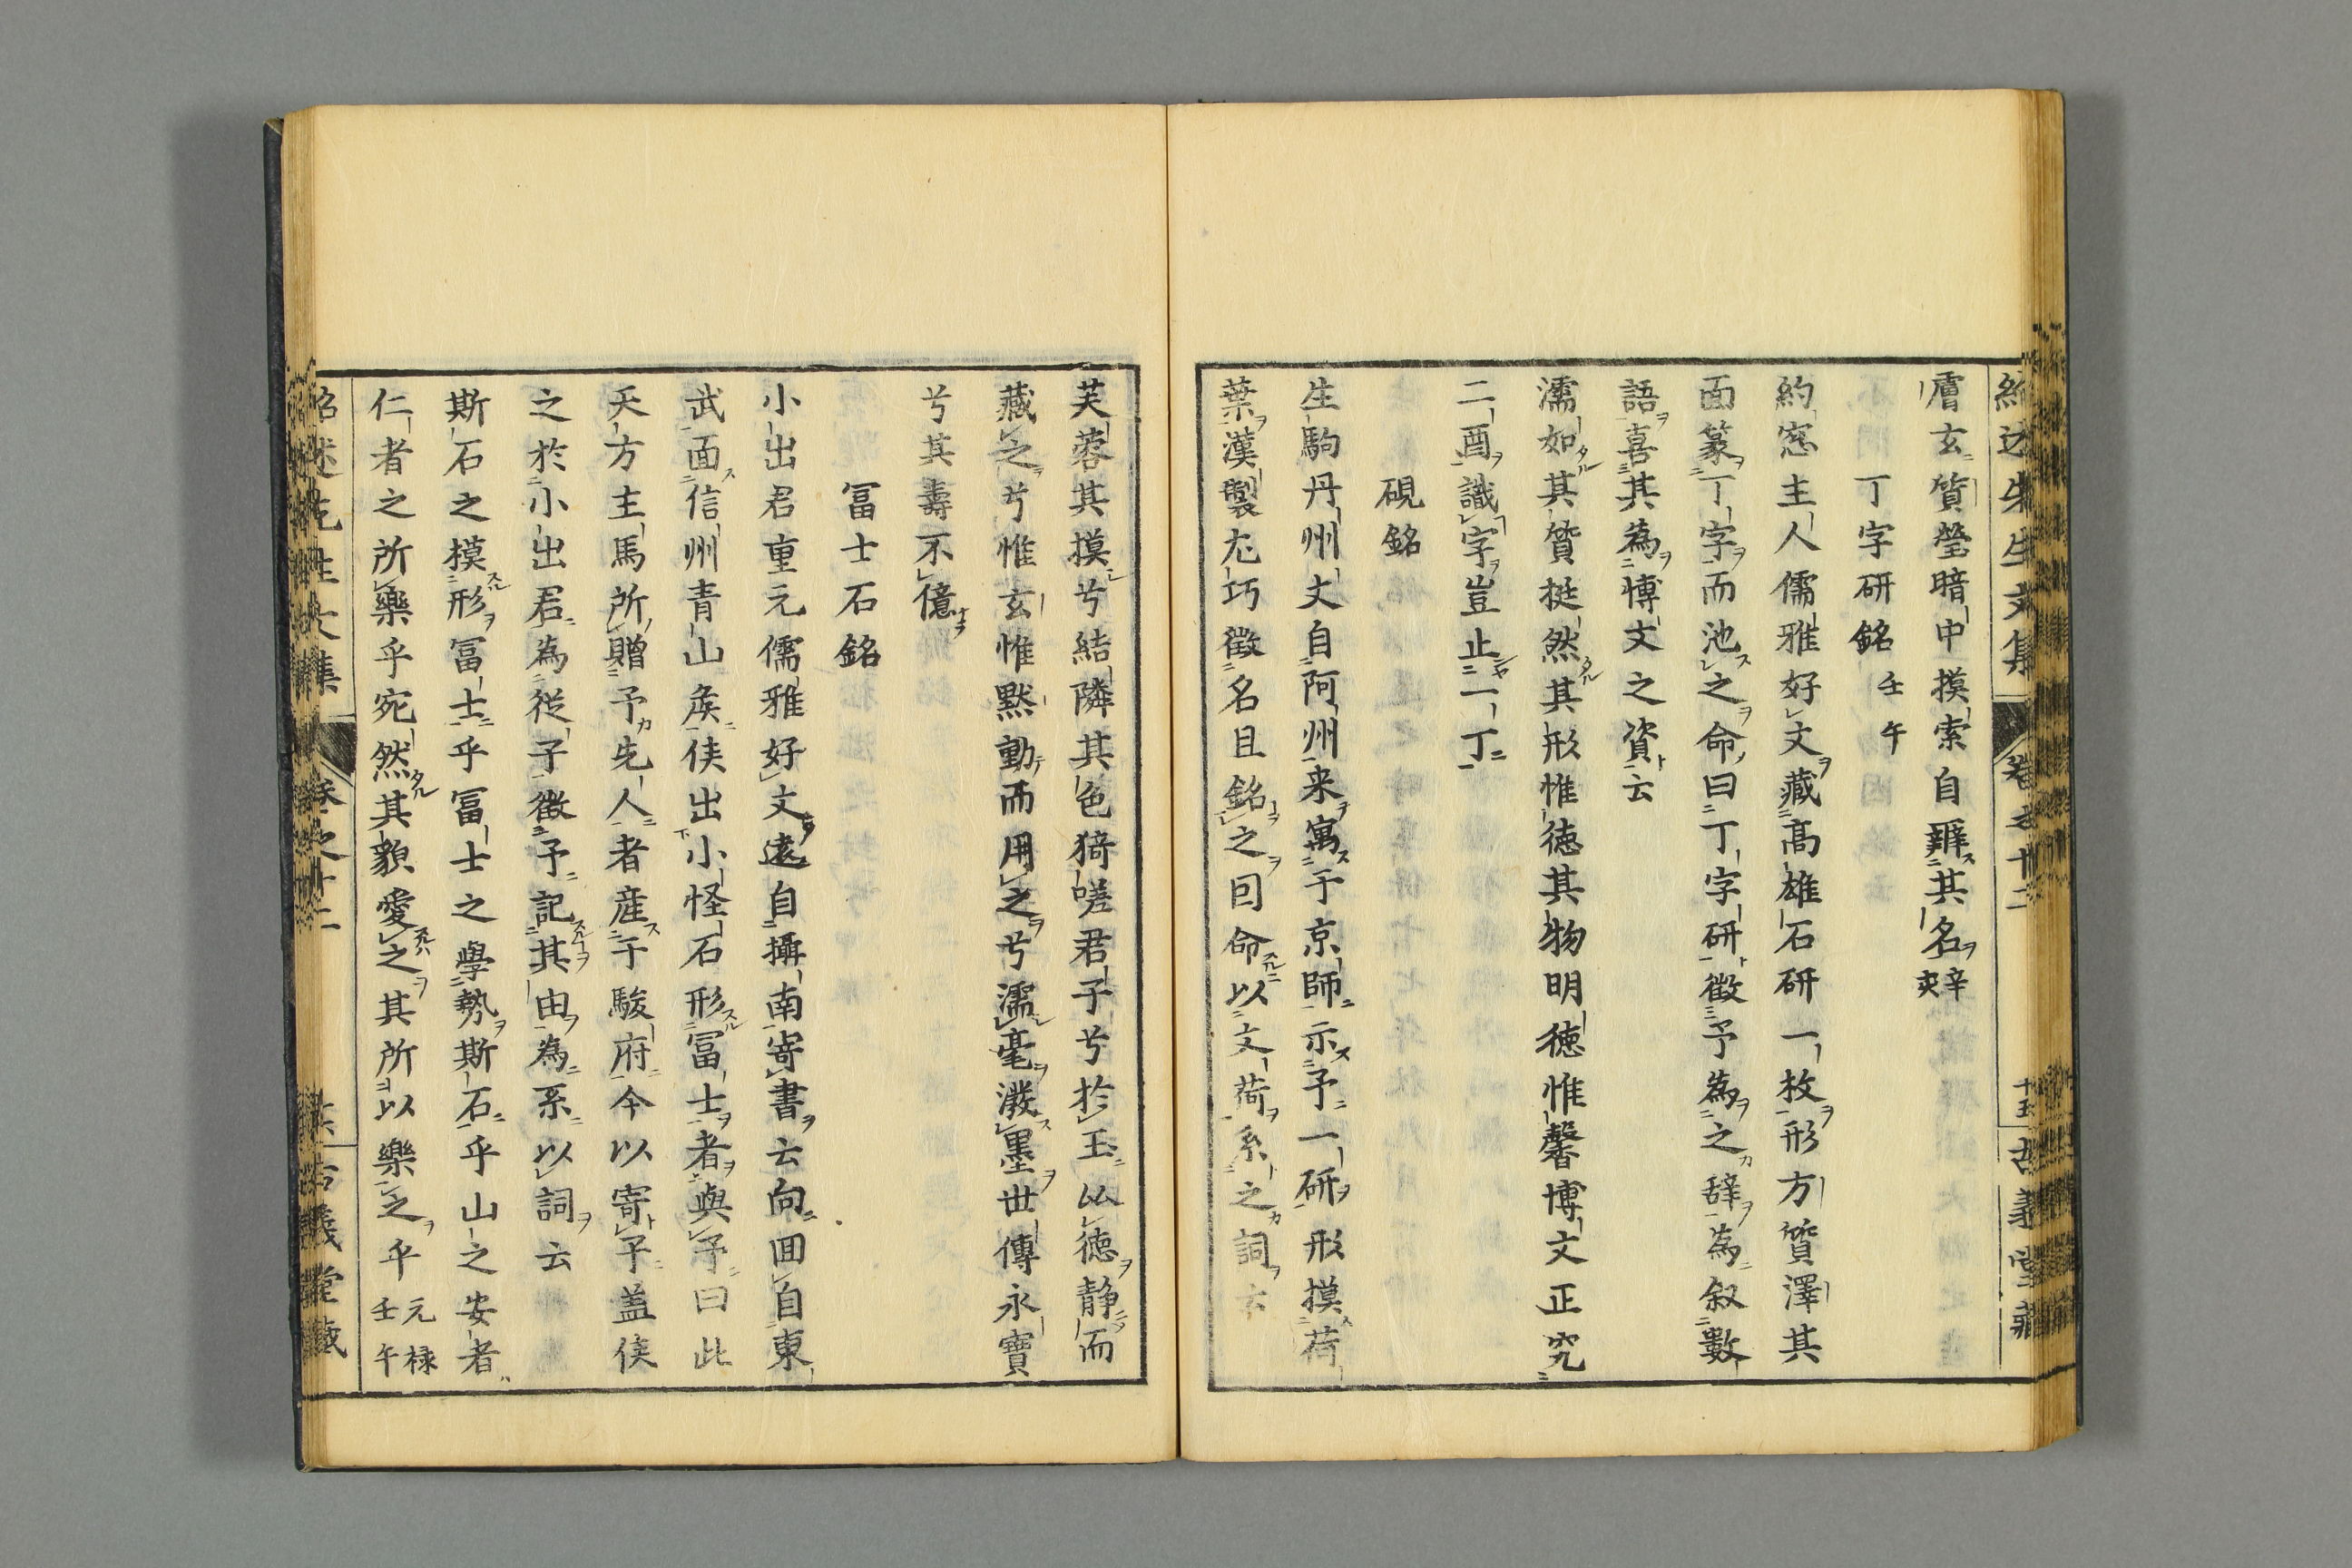 膚玄質瑩暗中摸索自辨其名辛夾
丁字研銘壬午
約窓主人儒雅好文藏高雄石研一枚形方質澤其
面篆丁字而池之命曰丁字研徵予為之辞為叙數
語喜其為博文之資云
濡如其質挺然其形惟徳其物明徳惟馨博文正究
二酉識字豈止一丁
硯銘
生駒丹州丈自阿州来寓于京師示予一研形摸荷
葉漢製尤巧徵名且銘之囙命以文荷系之詞云
芙蓉其摸兮結隣其色猗嗟君子兮於玉以徳静而
藏之兮惟玄惟黙動而用之兮濡毫潑墨世傳永寶
兮其壽不億
冨士石銘
小出君重元儒雅好文遠自攝南寄書云向囬自東
武面信州青山矦侯出小怪石形冨士者與予曰此
天方主馬所贈予先人者産于駿府今以寄予盖侯
之於小出君為從子徵予記其由為系以詞云
斯石之摸形冨士乎冨士之學勢斯石乎山之安者
仁者之所樂乎宛然其貌愛之其所以樂之乎元禄壬午
紹述先生文集 卷之十二 古義堂藏